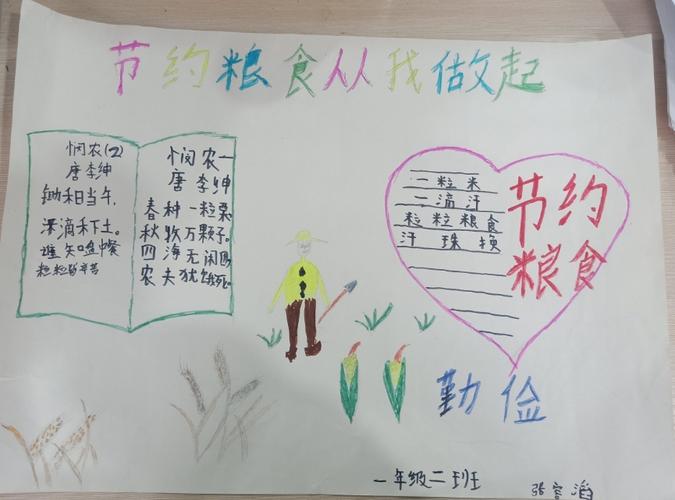 节约粮食从我做起
悯农(2)
唐李绅
锄禾日当午,
汗滴禾下土。
谁知盘中餐
粒粒皆辛苦
悯农一
唐李绅
春种一粒粟
秋收万颗子。
四海无闲田
农夫犹饿死。
一粒米
一滴汗
粒粒粮食
汗珠换
节约
粮食
勤俭
一年级二班
张